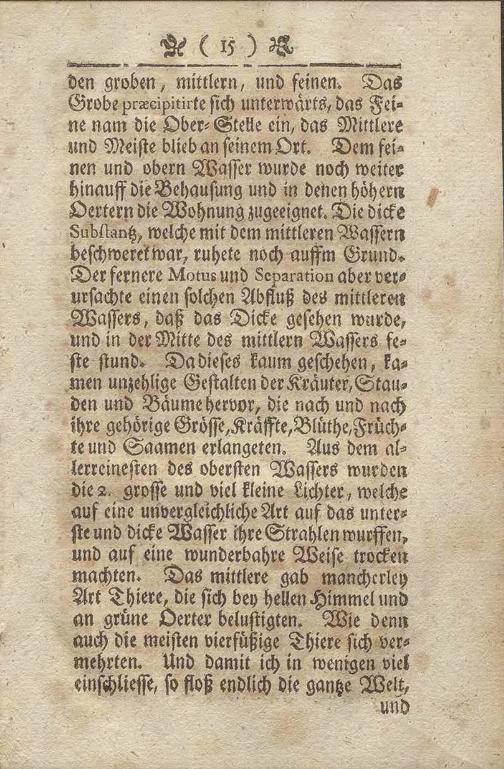 ( 15 )
den groben, mittlern, und feinen. Das
Grobe præcipitirte sich unterwärts, das Fei-
ne nam die Ober-Stelle ein, das Mittlere
und Meiste blieb an seinem Ort. Dem fei-
nen und obern Wasser wurde noch weiter
hinauff die Behausung und in denen höhern
Oertern die Wohnung zugeeignet. Die dicke
Substantz, welche mit dem mittleren Wassern
beschweret war, ruhete noch auffm Grund.
Der fernere Motus und Separation aber ver-
ursachte einen solchen Abfluß des mittleren
Wassers, daß das Dicke gesehen wurde,
und in der Mitte des mittlern Wassers fe-
ste stund. Da dieses kaum geschehen, ka-
men unzehlige Gestalten der Kräuter, Stau-
den und Bäume hervor, die nach und nach
ihre gehörige Grösse, Kräffte, Blüthe, Früch-
te und Saamen erlangeten. Aus dem al-
lerreinesten des obersten Wassers wurden
die 2. grosse und viel kleine Lichter, welche
auf eine unvergleichliche Art auf das unter-
ste und dicke Wasser ihre Strahlen wurffen,
und auf eine wunderbahre Weise trocken
machten. Das mittlere gab mancherley
Art Thiere, die sich bey hellen Himmel und
an grüne Oerter belustigten. Wie denn
auch die meisten vierfüßige Thiere sich ver-
mehrten. Und damit ich in wenigen viel
einschliesse, so floß endlich die gantze Welt,
und